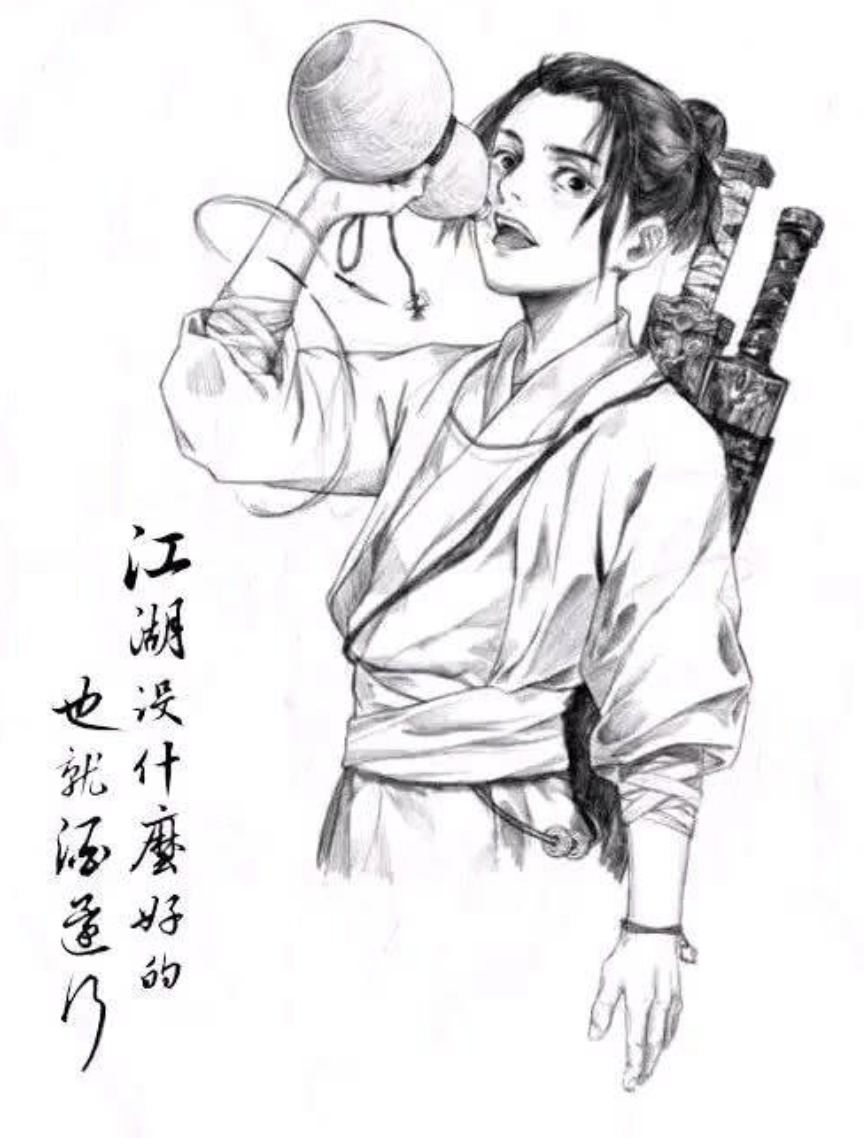 江湖没什麽好的
也就酒還行